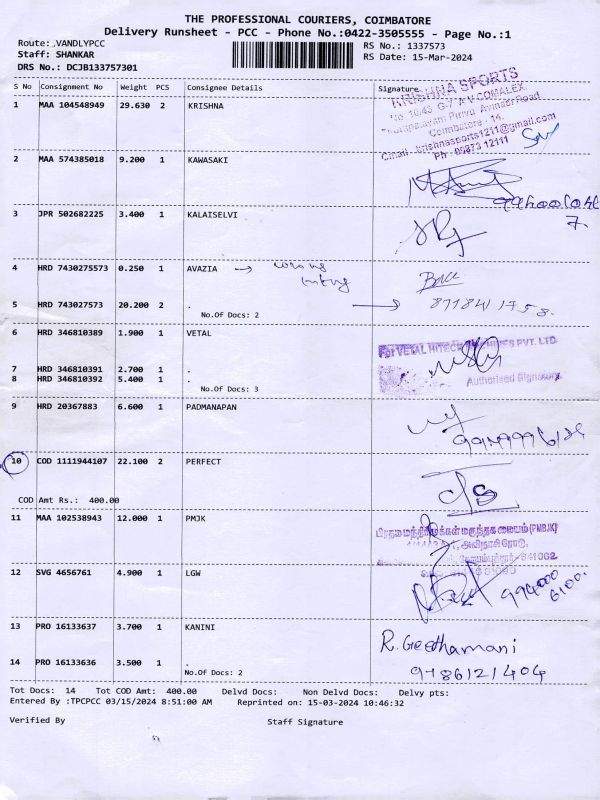 THE PROFESSIONAL COURIERS, COIMBATORE
Delivery Runsheet - PCC - Phone No.:0422-3505555 - Page No.:1
Route: VANDLYPCC
RS No.: 1337573
Staff: SHANKAR
RS Date: 15-Mar-2024
DRS No.: DCJB133757301
S No Consignment No Weight PCS Consignee Details Signature
1 MAA 104548949 29.630 2 KRISHNA
KRISHNA SPORTS
Coimbatore - 14.
Email: krishnasports1211@gmail.com
2 MAA 574385018 9.200 1 KAWASAKI
3 JPR 502682225 3.400 1 KALAISELVI
4 HRD 7430275573 0.250 1 AVAZIA
5 HRD 743027573 20.200 2 .
No.Of Docs: 2
6 HRD 346810389 1.900 1 VETAL
For VETAL HITECH PVT. LTD.
7 HRD 346810391 2.700 1 .
8 HRD 346810392 5.400 1 .
Authorised Signatory
No.Of Docs: 3
9 HRD 20367883 6.600 1 PADMANAPAN
10 COD 1111944107 22.100 2 PERFECT
COD Amt Rs.: 400.00
11 MAA 102538943 12.000 1 PMJK
மக்கள் மருந்தகம் (PMBJK)
அவிநாசி ரோடு,
641062
12 SVG 4656761 4.900 1 LGW
994000
6100.
13 PRO 16133637 3.700 1 KANINI
R. Geethamani
14 PRO 16133636 3.500 1 .
9786121404
No.Of Docs: 2
Tot Docs: 14 Tot COD Amt: 400.00 Delvd Docs: Non Delvd Docs: Delvy pts:
Entered By :TPCPCC 03/15/2024 8:51:00 AM Reprinted on: 15-03-2024 10:46:32
Verified By Staff Signature